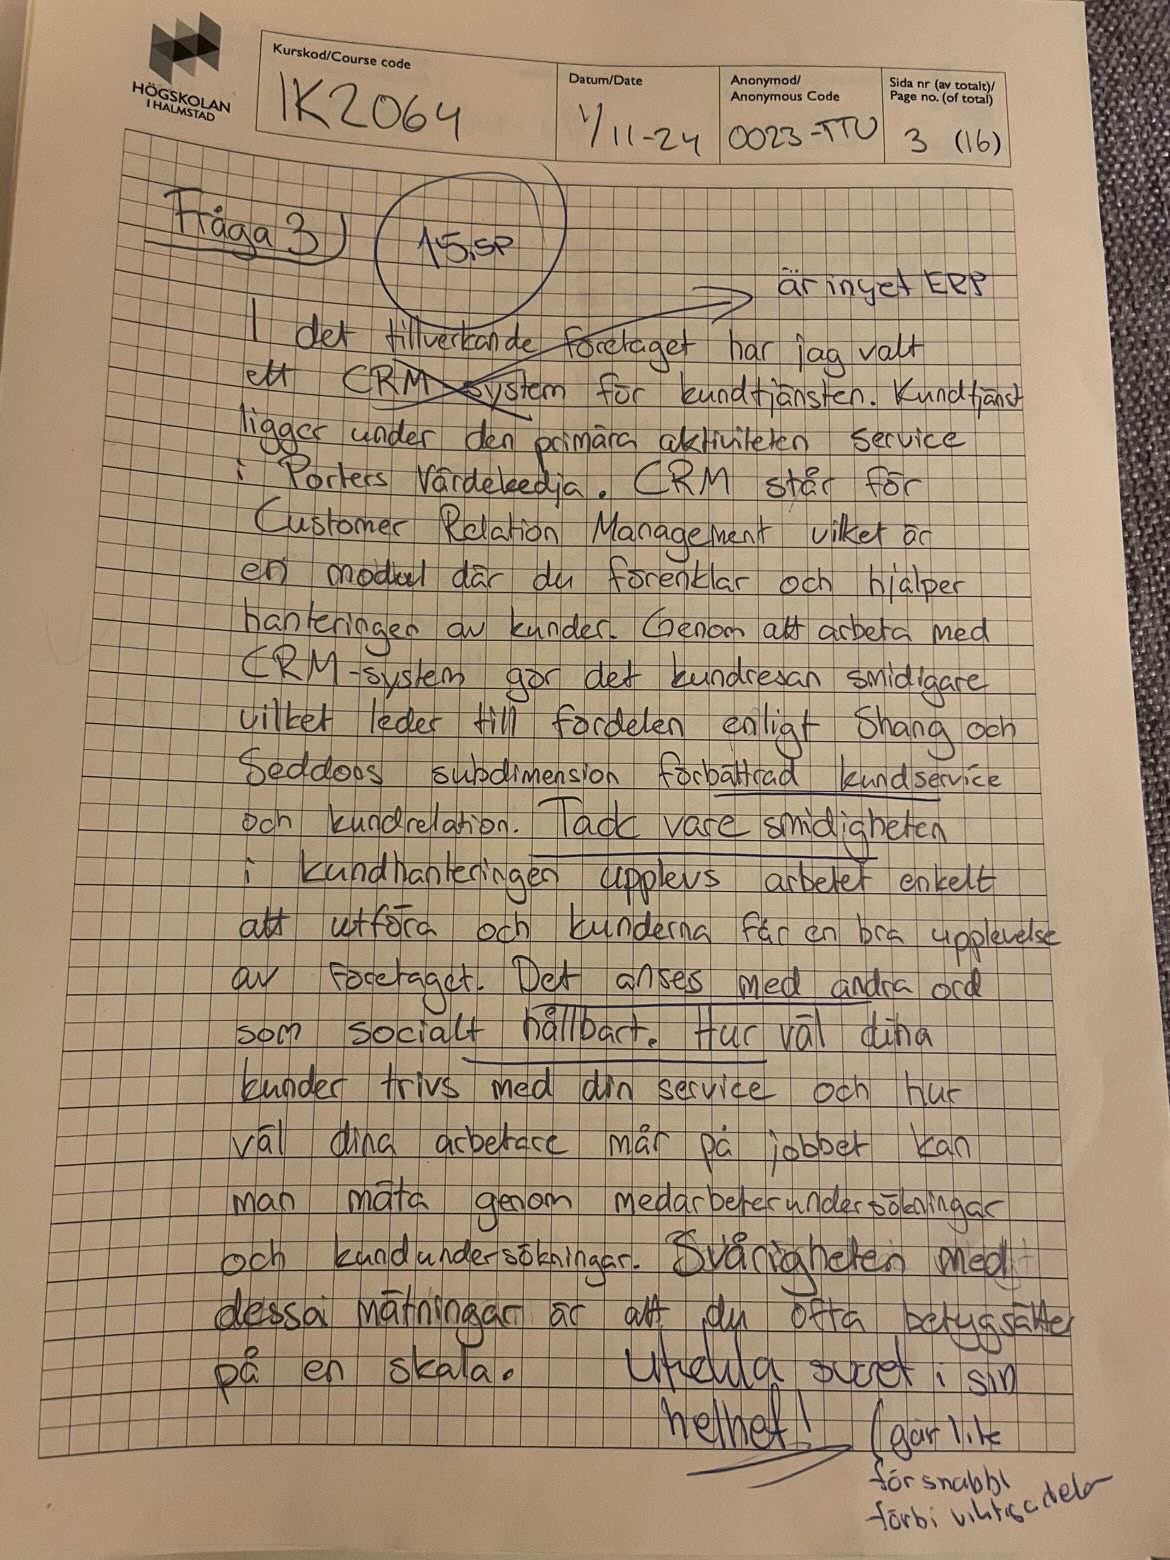 HÖGSKOLAN
I HALMSTAD
Kurskod/Course code
IK2064
Datum/Date
1/11-24
Anonymod/
Anonymous Code
0023-TTU
Sida nr (av totalt)/
Page no. (of total)
3 (16)
Fråga 3)
15,5P
är inget ERP
I det tillverkande företaget har jag valt
ett CRM system för kundtjänsten. Kundtjänst
ligger under den primära aktiviteten service
i Porters Värdekedja. CRM står för
Customer Relation Management vilket är
en modul där du förenklar och hjälper
hanteringen av kunder. Genom att arbeta med
CRM-system gör det kundresan smidigare
vilket leder till fördelen enligt Shang och
Seddons subdimension förbättrad kundservice
och kundrelation. Tack vare smidigheten
i kundhanteringen upplevs arbetet enkelt
att utföra och kunderna får en bra upplevelse
av företaget. Det anses med andra ord
som socialt hållbart. Hur väl dina
kunder trivs med din service och hur
väl dina arbetare mår på jobbet kan
man mäta genom medarbeterundersökningar
och kundundersökningar. Svårigheten med
dessa mätningar är att du ofta betygsätter
på en skala.
Utveckla svaret i sin
helhet! (går lite
för snabbt
förbi viktiga delar